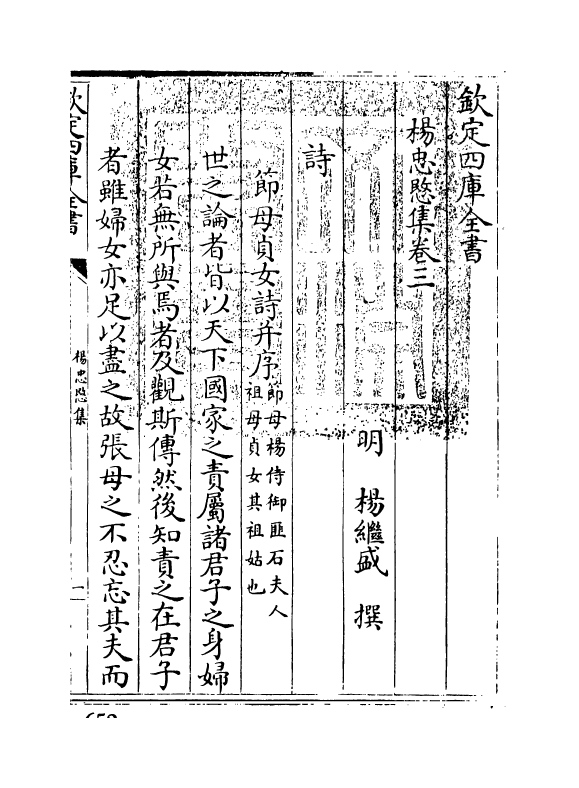 欽定四庫全書
楊忠愍集卷三
明　楊繼盛　撰
詩
節母貞女詩并序節母楊侍御匪石夫人
祖母貞女其祖姑也
世之論者皆以天下國家之責屬諸君子之身婦
女若無所與焉者及觀斯傳然後知責之在君子
者雖婦女亦足以盡之故張母之不忍忘其夫而
欽定四庫全書
楊忠愍集
一